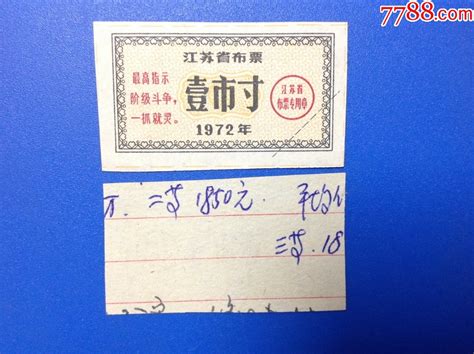 7788.com
江苏省布票
最高指示
阶级斗争，
一抓就灵。
壹市寸
江苏省
布票专用章
1972年
二等 1850元. 平均
三等.18